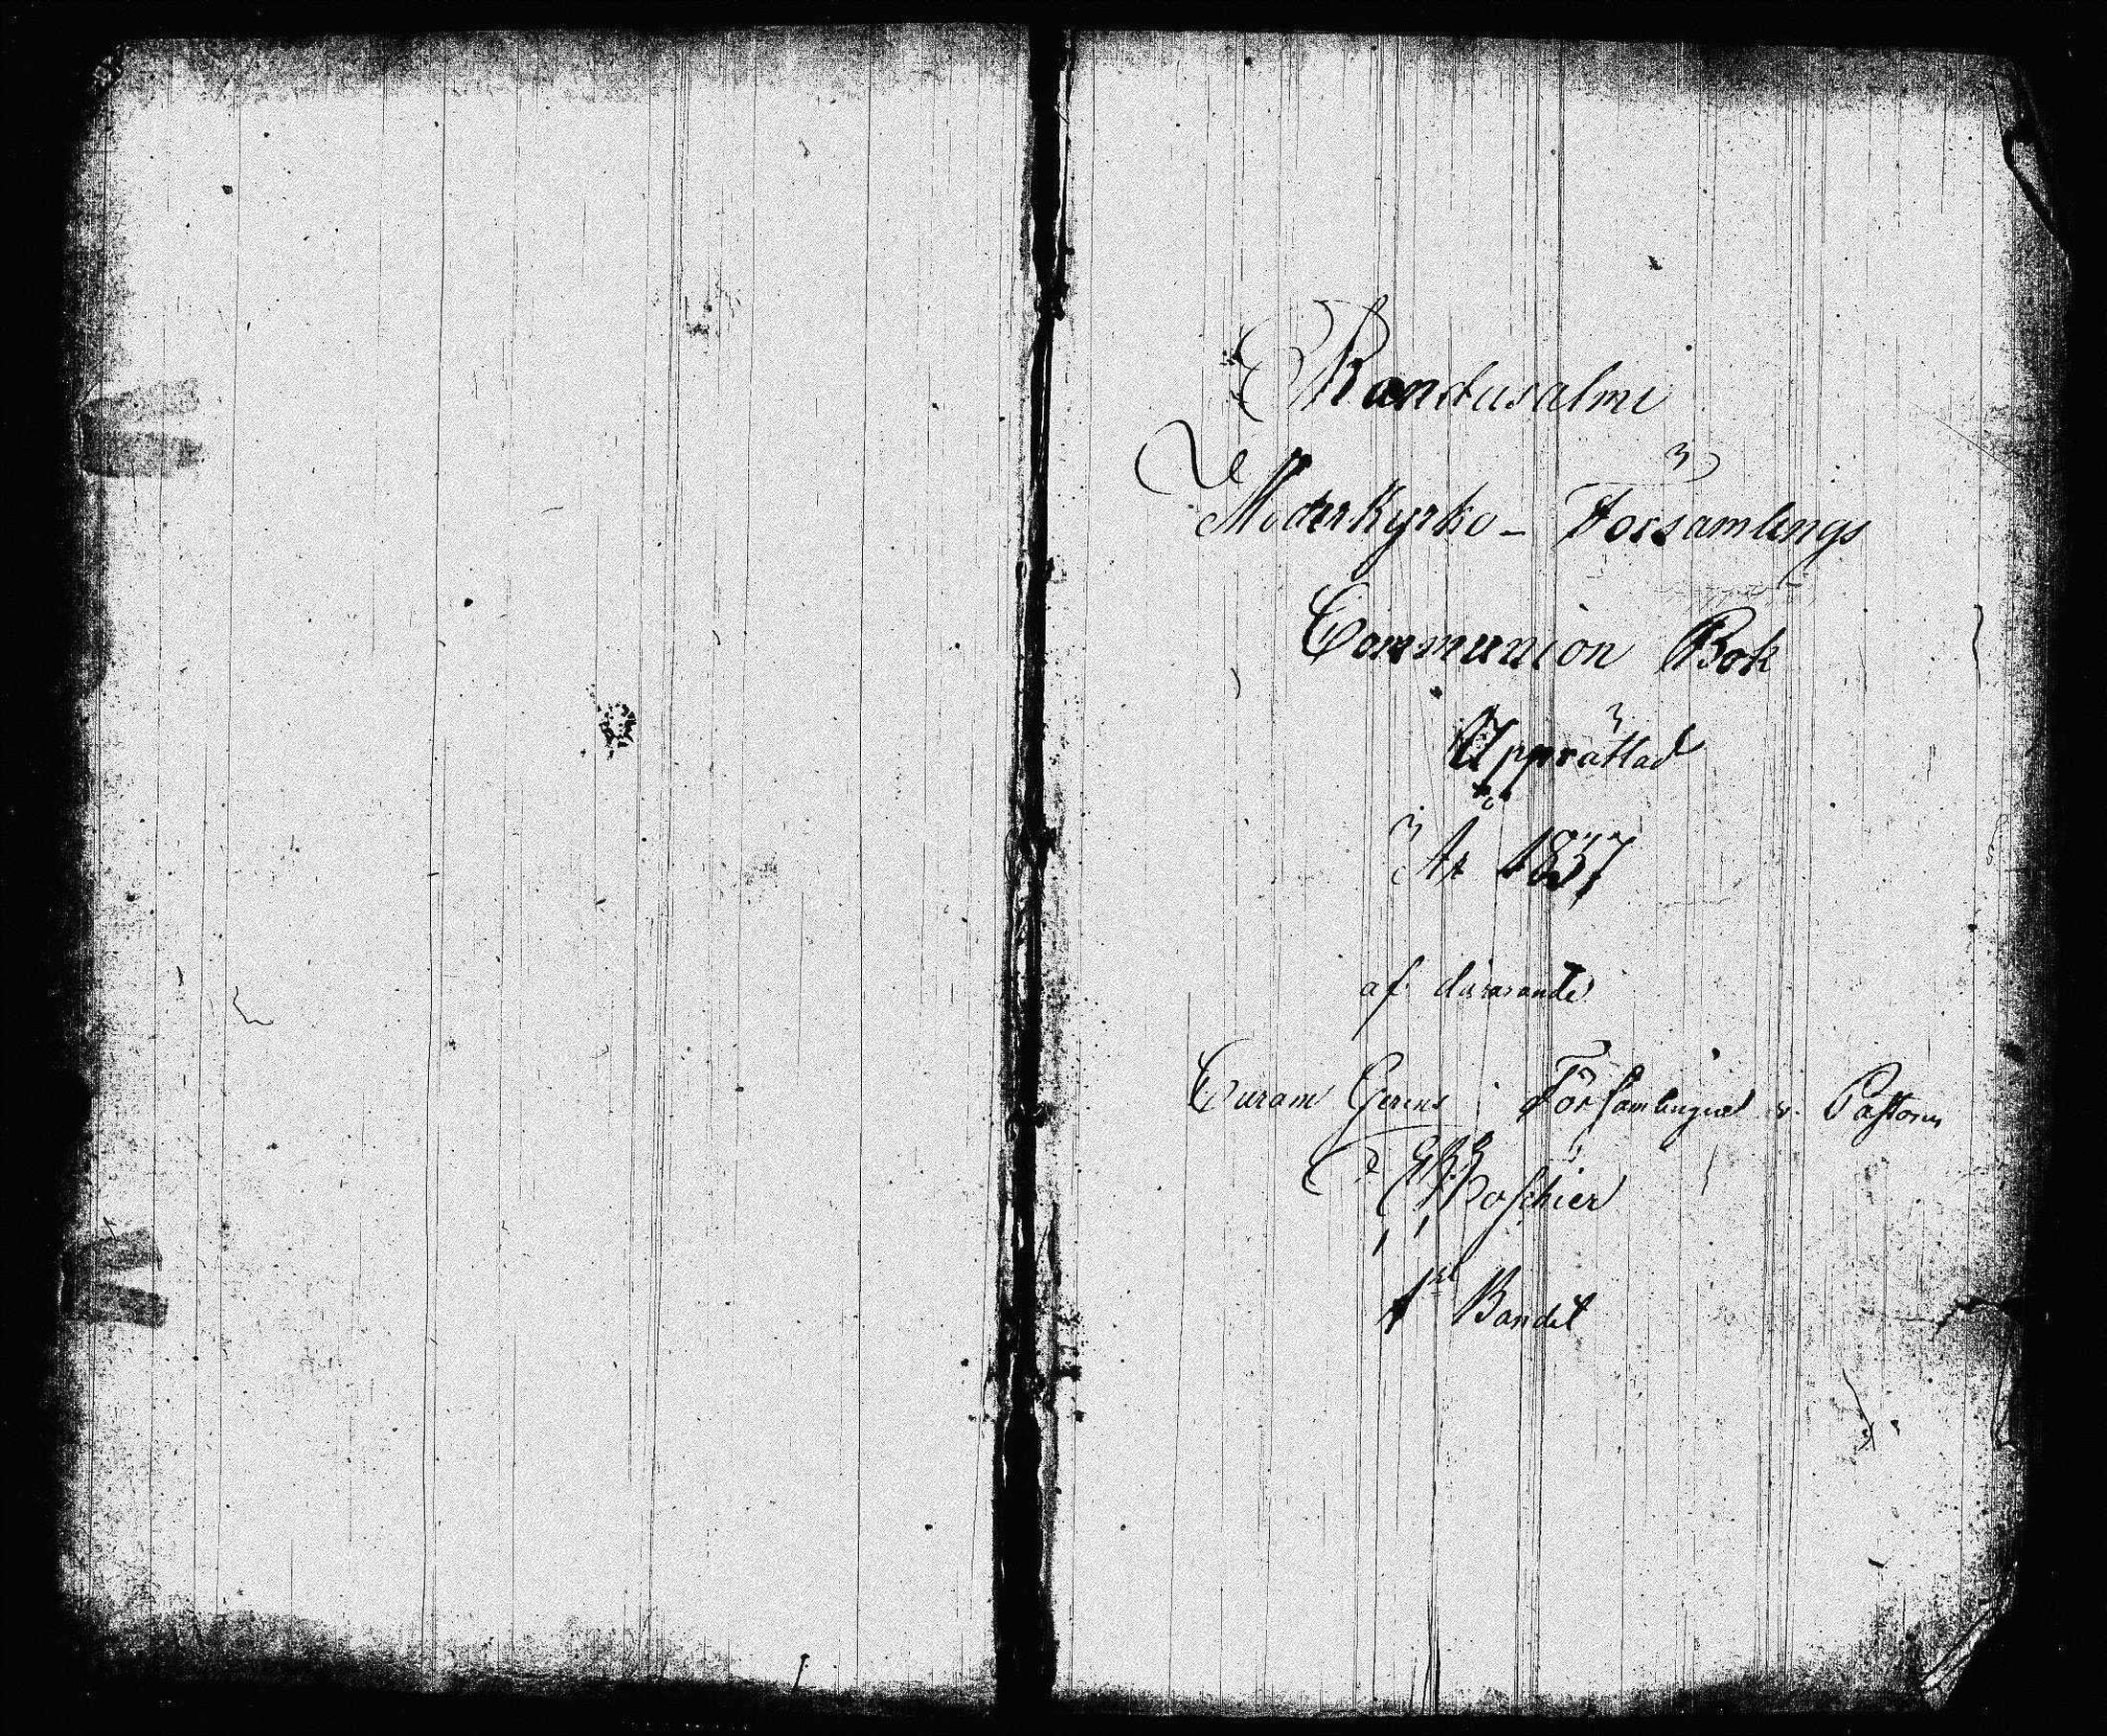 Randasalmi
Moderkyrko - Församlings
Communion Bok
Upprättad
År 1837
af duvarande
Curam Gerens i Församlingen v. Pastorn
Poschier
1sta Bandet